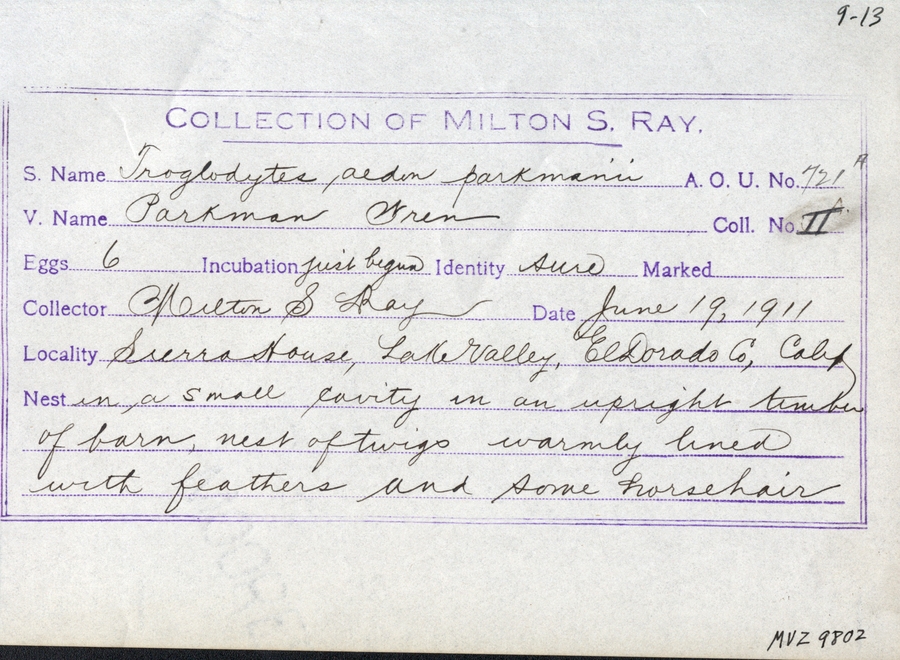 9-13
COLLECTION OF MILTON S. RAY.
S. Name Troglodytes aedon parkmanii A. O. U. No. 721 A
V. Name Parkman Wren Coll. No. II
Eggs 6 Incubation just begun Identity sure Marked
Collector Milton S Ray Date June 19, 1911
Locality Sierra House, Lake Valley, El Dorado Co, Calif
Nest in a small cavity in an upright timber
of barn, nest of twigs warmly lined
with feathers and some horsehair
MVZ 9802